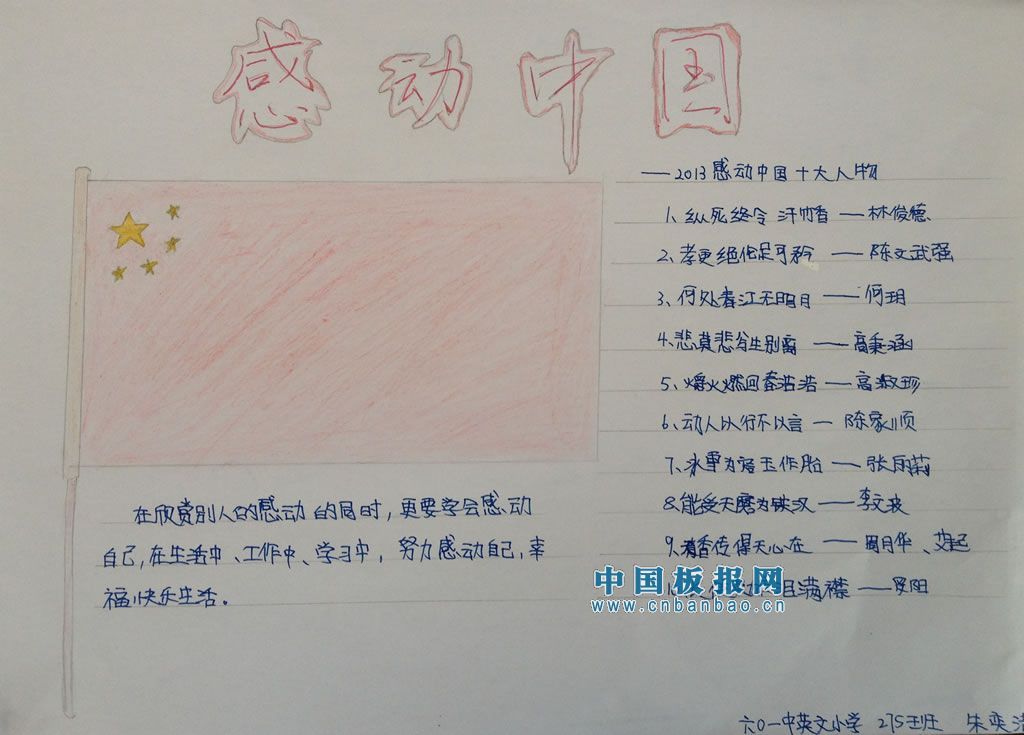 感动中国
——2013感动中国十大人物
1、纵死终令汗竹香——林俊德
2、孝更绝伦足可矜——陈文武强
3、何处春江无明月——何玥
4、悲莫悲兮生别离——高秉涵
5、爝火燃回春浩浩——高淑珍
6、动人以行不以言——陈家顺
7、冰雪为容玉作胎——张丽莉
8、能受天磨为铁汉——李文波
9、清香传得天心在——周月华、艾起
满襟——罗阳
在欣赏别人的感动的同时，更要学会感动
自己，在生活中、工作中、学习中，努力感动自己，幸
福快乐生活。
中国板报网
www.cnbanbao.cn
六〇一中英文小学 275班 朱奕